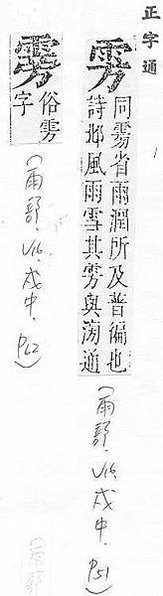 正字通
雱
同霶省雨潤所及普徧也
詩邶風雨雪其雱與滂通
(雨部.V16.戌中.P51)
俗雱
字
(雨部.V16.戌中.P62)